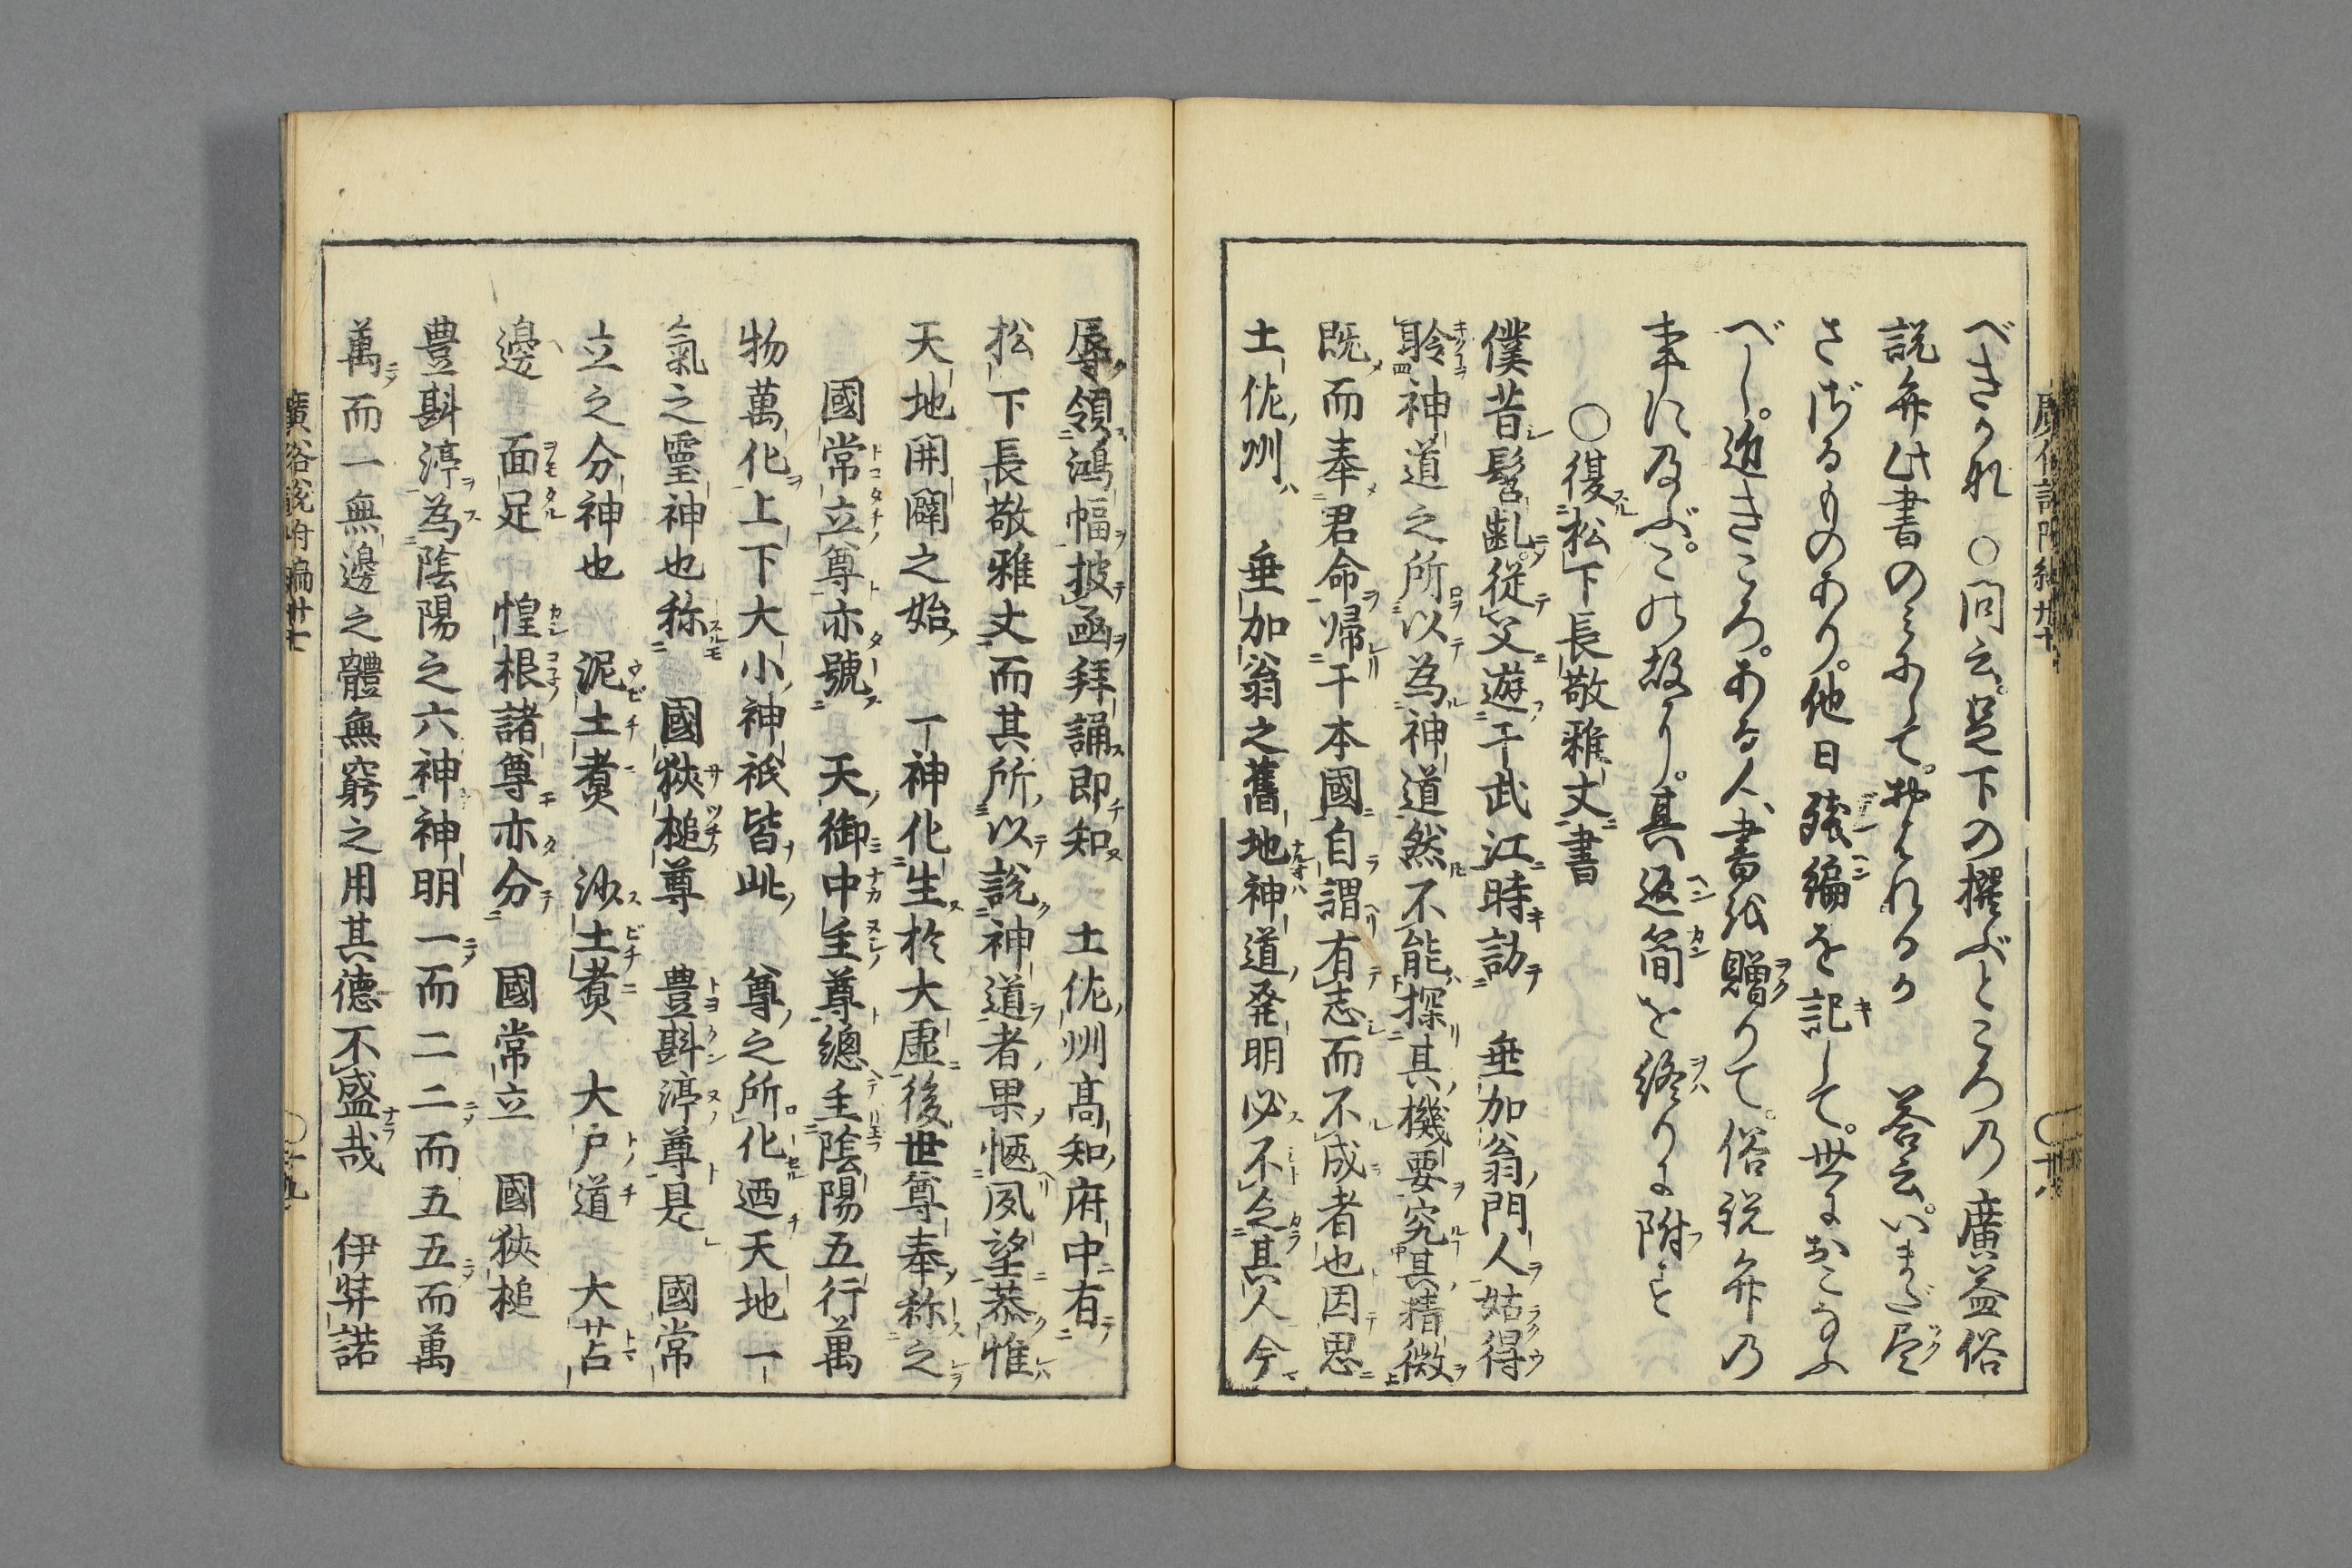 べきうれ〇問云。足下の撰ぶところ乃廣益俗
説弁此書のみにして。おはれるか 答云。いまだ尽
さゞるものあり。他日残編を記して。世におこなふ
べし。近きころ。ある人、書を贈りて。俗説弁乃
事に及ぶ。この故に。其返簡を終りに附すと
〇復松下長敬雅丈書
僕昔髫齔從父遊于武江時訪 垂加翁門人姑得
聆神道之所以為神道然不能探其機要究其精微
既而奉君命帰于本國自謂有志而不成者也因思
土佐州 垂加翁之舊地神道発明必不乏其人今
辱領鴻幅披函拜誦即知 土佐州髙知府中有
松下長敬雅丈而其所以説神道者果愜夙望恭惟
天地開闢之始 一神化生於大虚後世尊奉称之
國常立尊亦號 天御中主尊總主陰陽五行萬
物萬化上下大小神祇皆此 尊之所化迺天地一
氣之靈神也称 國狹槌尊 豊斟渟尊是 國常
立之分神也 泥土煑 沙土煑 大戸道 大苫
邊 面足 惶根諸尊亦分 國常立 國狹槌
豊斟渟為陰陽之六神神明一而二二而五五而萬
萬而一無邊之體無窮之用其德不盛哉 伊弉諾
廣俗説附編廿七